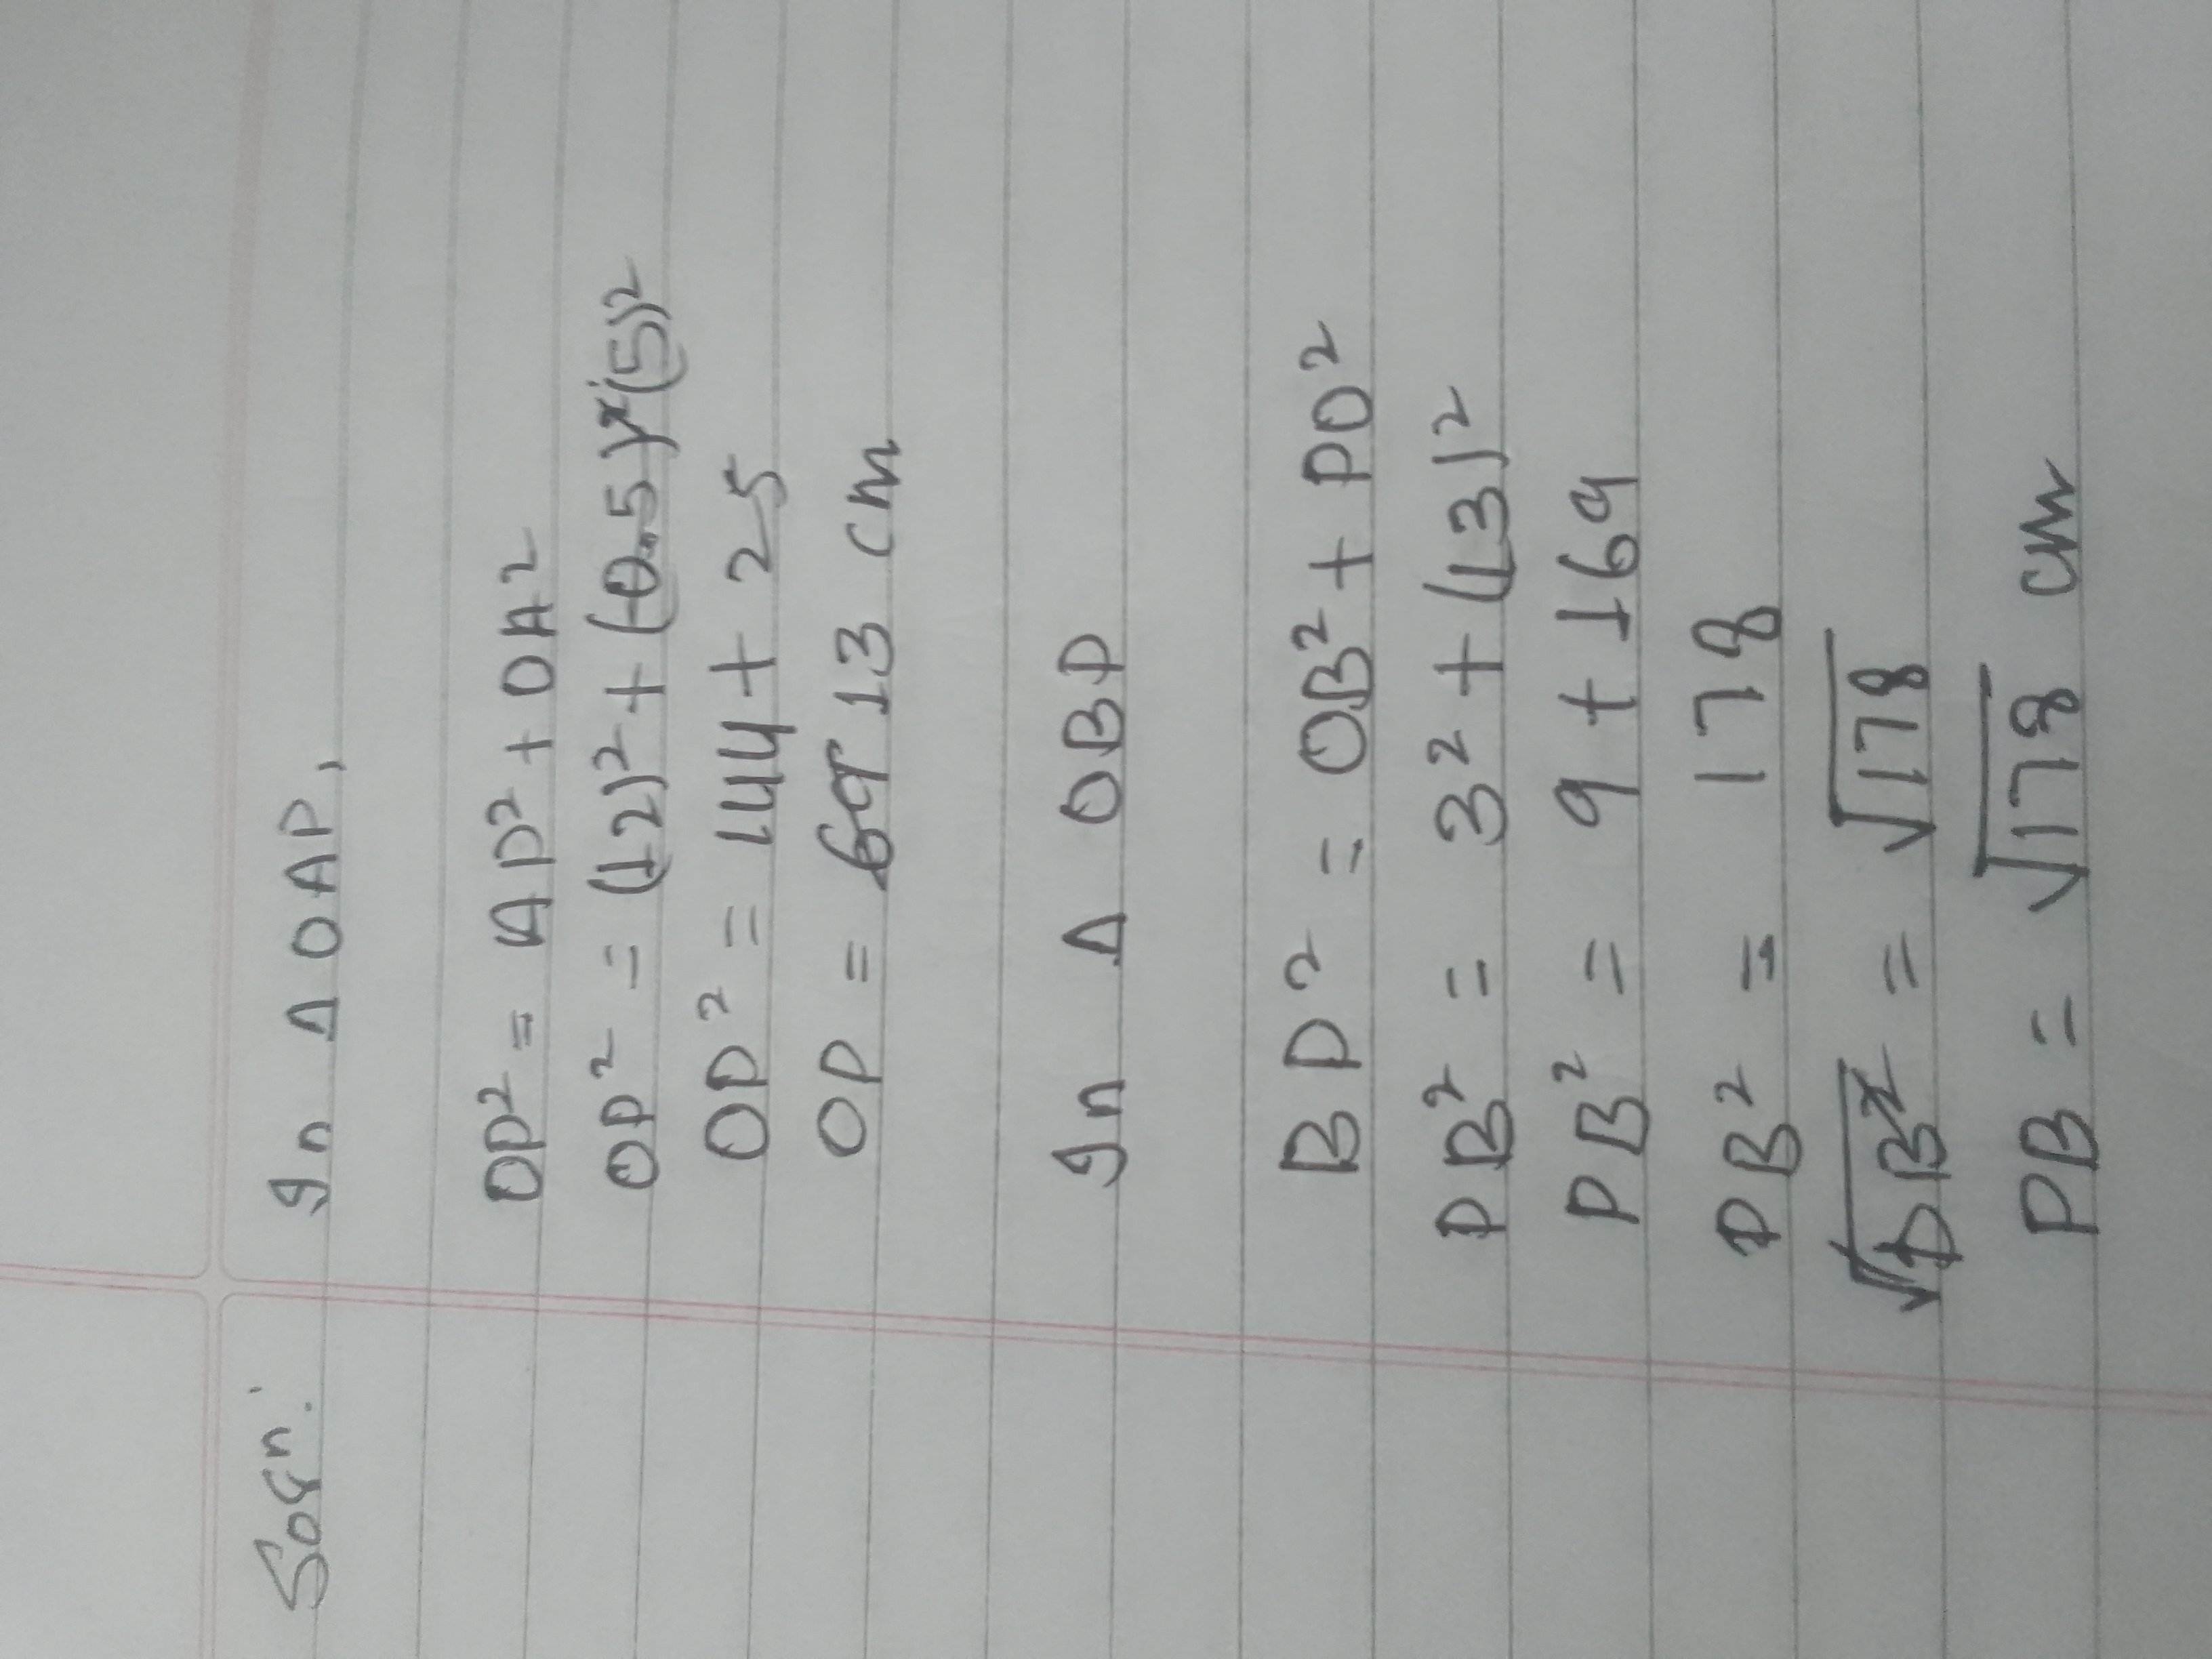 Soln. In Δ OAP,
OP² = AP² + OA²
OP² = (12)² + (5)²
OP² = 144 + 25
OP = 13 cm
In Δ OBP
BP² = OB² + PO²
PB² = 3² + (13)²
PB² = 9 + 169
PB² = 178
√PB² = √178
PB = √178 cm